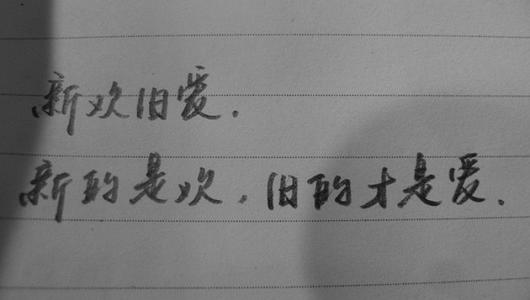 新欢旧爱.
新的是欢,旧的才是爱.